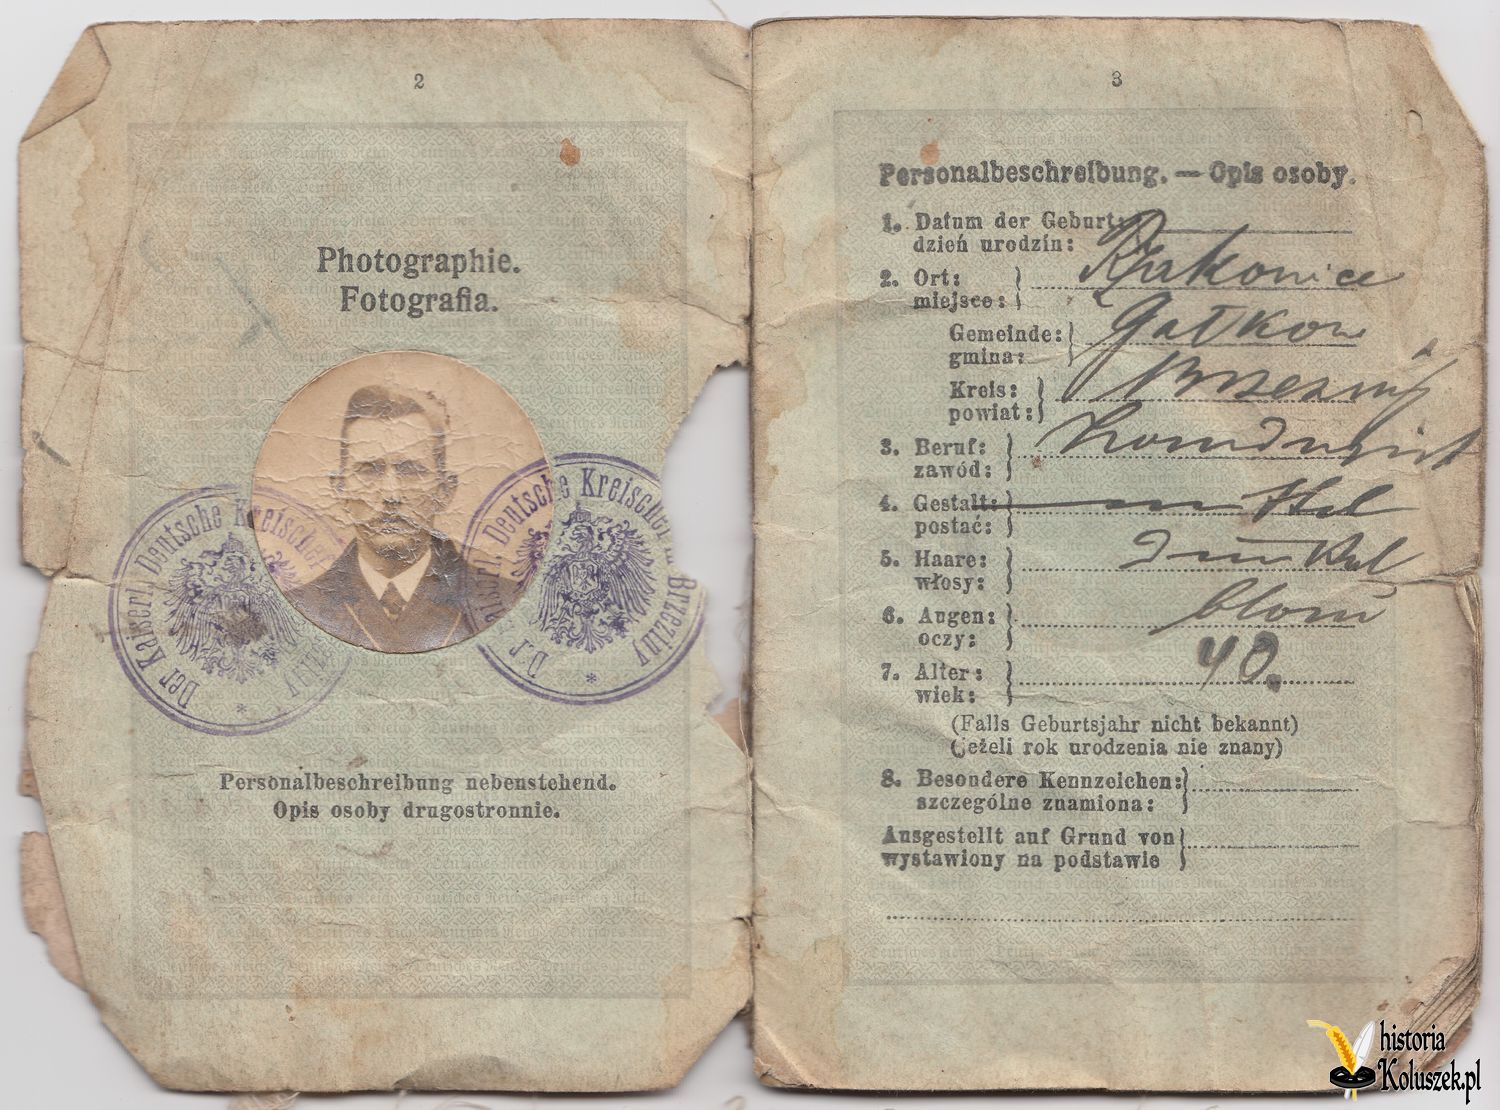 2
Photographie.
Fotografia.
Der Kaiserl. Deutsche Kreischef
Deutsche Kreischef Brzeziny
Personalbeschreibung nebenstehend.
Opis osoby drugostronnie.
3
Personalbeschreibung. — Opis osoby.
1. Datum der Geburt:
dzień urodzin:
2. Ort:
miejsce:
Gemeinde: Gałkow
gmina:
Kreis: Brzeziny
powiat:
3. Beruf:
zawód:
4. Gestalt: mittel
postać:
5. Haare: dunkel
włosy:
6. Augen: blau
oczy:
7. Alter: 40.
wiek:
(Falls Geburtsjahr nicht bekannt)
(jeżeli rok urodzenia nie znany)
8. Besondere Kennzeichen:
szczególne znamiona:
Ausgestellt auf Grund von
wystawiony na podstawie
historia
Koluszek.pl